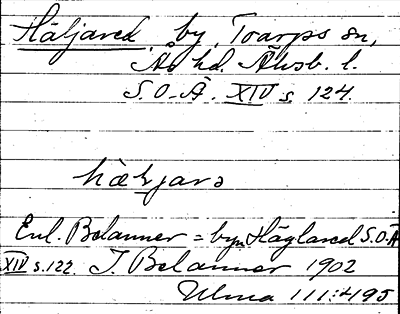 Häljared. by, Toarps sn,
Ås hd. Älvsb. l.
S.O.Ä. XIV s. 124.
hækjarə
Enl. Belanner = byn Häglared S.O.Ä
XIV s. 122. T. Belanner 1902
Ulma 111:495